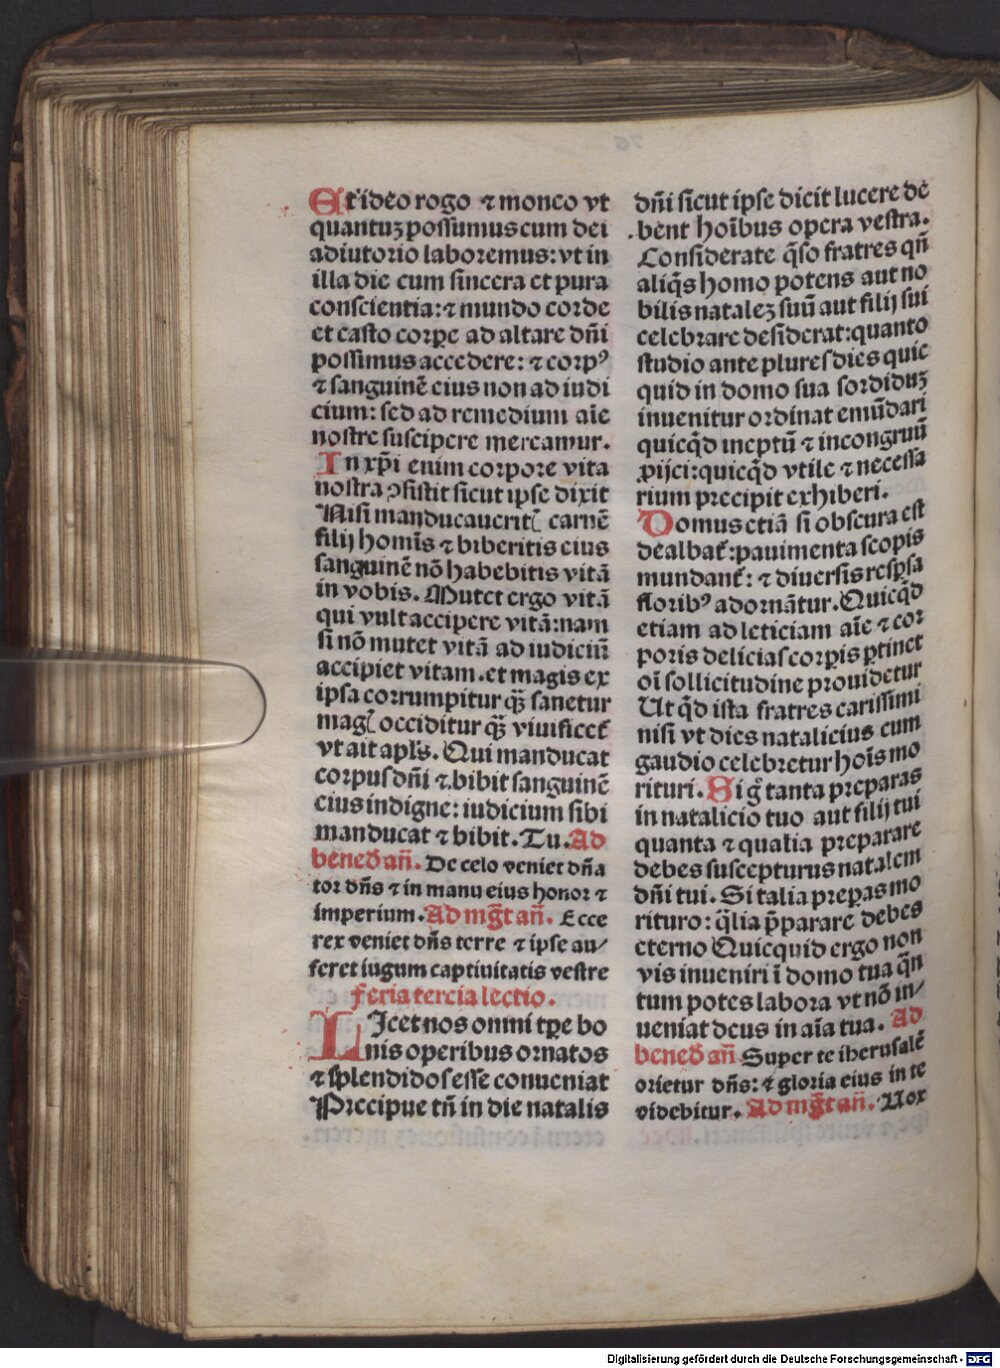 Et ideo rogo ⁊ moneo vt
quantuꝫ possumus cum dei
adiutorio laboremus: vt in
illa die cum sincera et pura
conscientia: ⁊ mundo corde
et casto corꝑe ad altare dñi
possimus accedere: ⁊ corpꝰ
⁊ sanguinē eius non ad iudi
cium: sed ad remedium aīe
nostre suscipere mereamur.
In xp̄i enim corpore vita
nostra ꝯsistit sicut ipse dixit
Nisi manducaueritꝭ carnē
filij homīs ⁊ biberitis eius
sanguinē nō habebitis vitā
in vobis. Mutet ergo vitā
qui vult accipere vitā: nam
si nō mutet vitā ad iudiciū
accipiet vitam. et magis ex
ipsa corrumpitur qꝫ̄ sanetur
magꝭ occiditur qꝫ̄ viuificet᷑
vt ait apl̄s. Qui manducat
corpus dñi ⁊ bibit sanguinē
eius indigne: iudicium sibi
manducat ⁊ bibit. Tu. Ad
bened̄ añ. De celo veniet dn̄a
tor dn̄s ⁊ in manu eius honor ⁊
imperium. Ad mg̅t añ. Ecce
rex veniet dn̄s terre ⁊ ipse au/
feret iugum captiuitatis vestre
feria tercia lectio.
LIcet nos omni tꝑe bo
nis operibus ornatos
⁊ splendidos esse conueniat
Precipue tn̄ in die natalis
dñi sicut ipse dicit lucere de
bent hoībus opera vestra.
Considerate q̄so fratres qn̄
aliq̄s homo potens aut no
bilis nataleꝫ suū aut filij sui
celebrare desiderat: quanto
studio ante plures dies quic
quid in domo sua sordiduꝫ
inuenitur ordinat emūdari
quicq̄d ineptū ⁊ incongruū
ꝓijci: quicq̄d vtile ⁊ necessa
rium precipit exhiberi.
Domus etiā si obscura est
dealbat᷑: pauimenta scopis
mundant᷑: ⁊ diuersis resꝑsa
floribꝰ adornātur. Quicq̄d
etiam ad leticiam aīe ⁊ cor
poris delicias corꝑis ꝑtinet
oī sollicitudine prouidetur
Ut qd̄ ista fratres carissimi
nisi vt dies natalicius cum
gaudio celebretur hoīs mo
rituri. Si g̊ tanta preparas
in natalicio tuo aut filij tui
quanta ⁊ qualia preparare
debes suscepturus natalem
dñi tui. Si talia preꝑas mo
rituro: q̄lia p̄parare debes
eterno Quicquid ergo non
vis inueniri ī domo tua q̄n
tum potes labora vt nō in/
ueniat deus in aīa tua. Ad
bened̄ añ Super te iherusalē
orietur dn̄s: ⁊ gloria eius in te
videbitur. Ad mg̅t añ. Uox
Digitalisierung gefördert durch die Deutsche Forschungsgemeinschaft - DFG